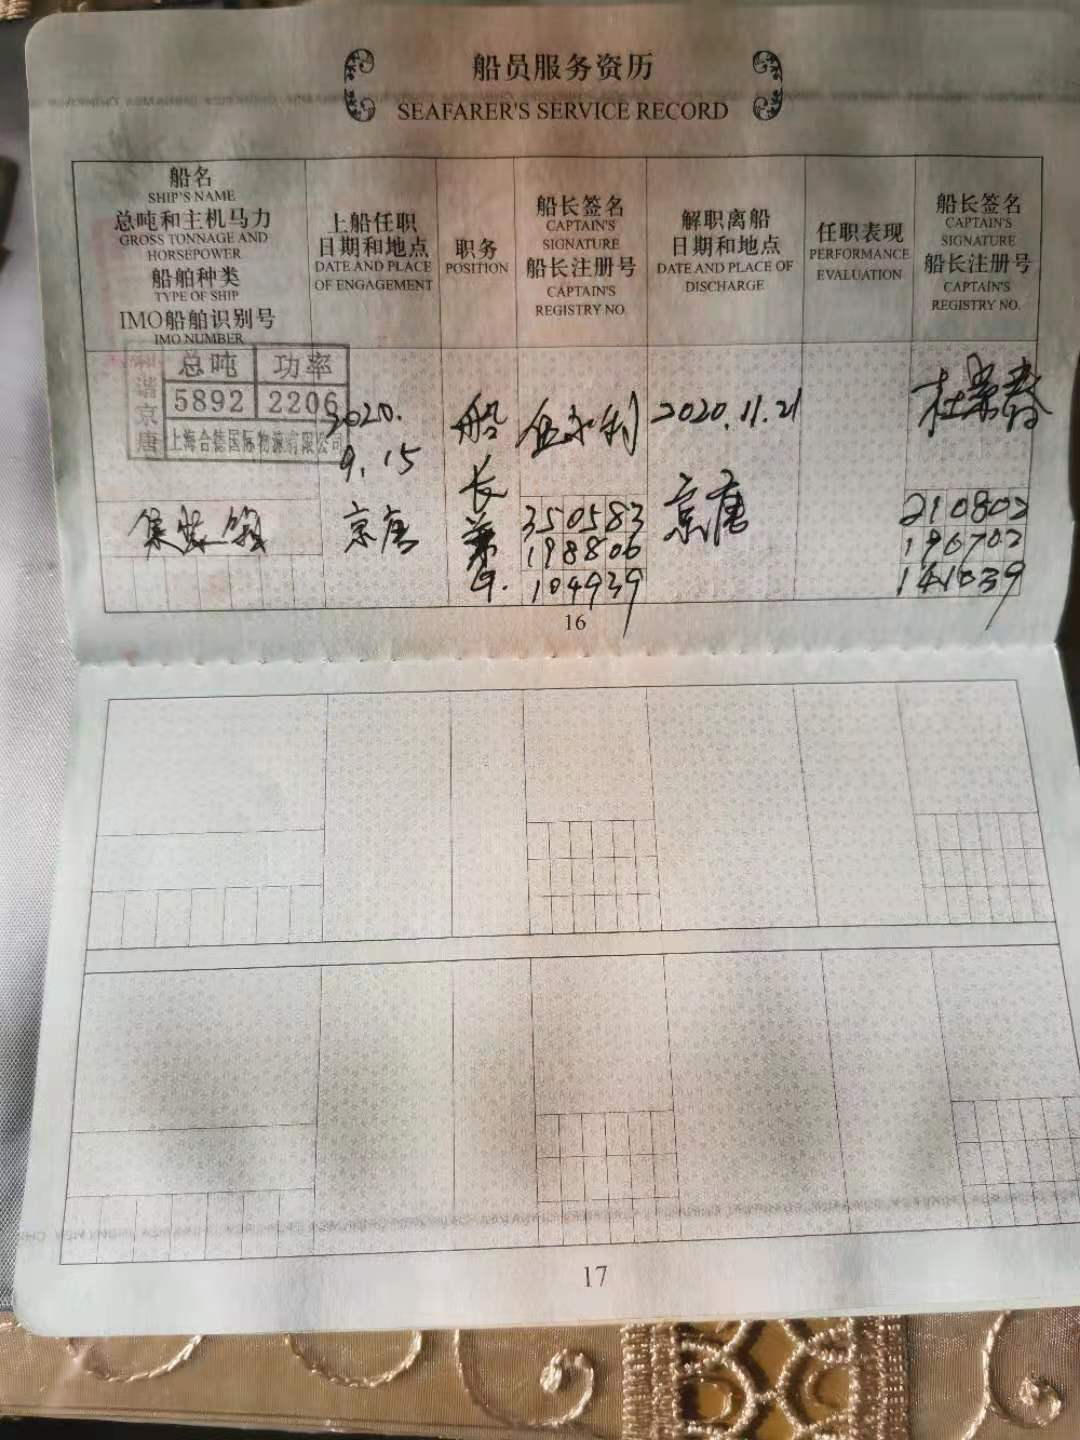 船员服务资历
SEAFARER'S SERVICE RECORD
船名
SHIP'S NAME
总吨和主机马力
GROSS TONNAGE AND
HORSEPOWER
船舶种类
TYPE OF SHIP
IMO船舶识别号
IMO NUMBER
上船任职
日期和地点
DATE AND PLACE
OF ENGAGEMENT
职务
POSITION
船长签名
CAPTAIN'S
SIGNATURE
船长注册号
CAPTAIN'S
REGISTRY NO.
解职离船
日期和地点
DATE AND PLACE OF
DISCHARGE
任职表现
PERFORMANCE
EVALUATION
船长签名
CAPTAIN'S
SIGNATURE
船长注册号
CAPTAIN'S
REGISTRY NO.
和谐京唐
总吨 功率
5892 2206
上海合德国际物流有限公司
集装箱
2020.
9.15
京唐
船
长
350583
198806
104939
2020.11.21
京唐
210802
141039
16
17